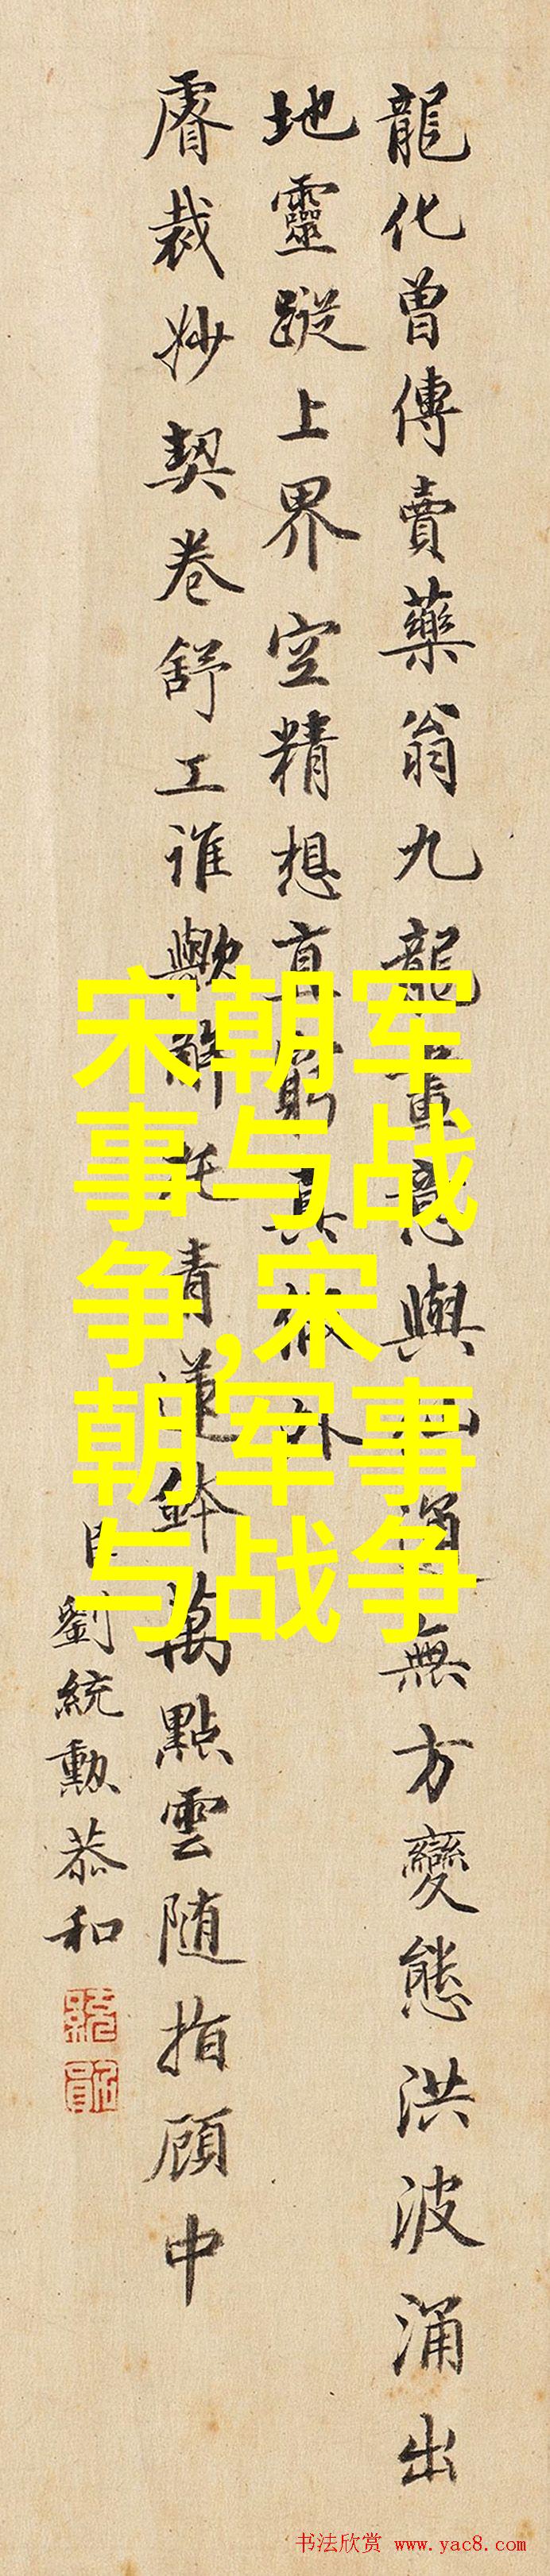 龍化曾傳賣藥翁九龍畫意與無方變態洪波涌出
地靈蹤上界空精想窮外
睿裁妙契卷舒工誰歟解托青蓮鉢萬點雲随指顧中
臣劉統勳恭和
宋朝军
事与战
争,宋
朝军事
与战争
书法欣赏 www.yac8.com